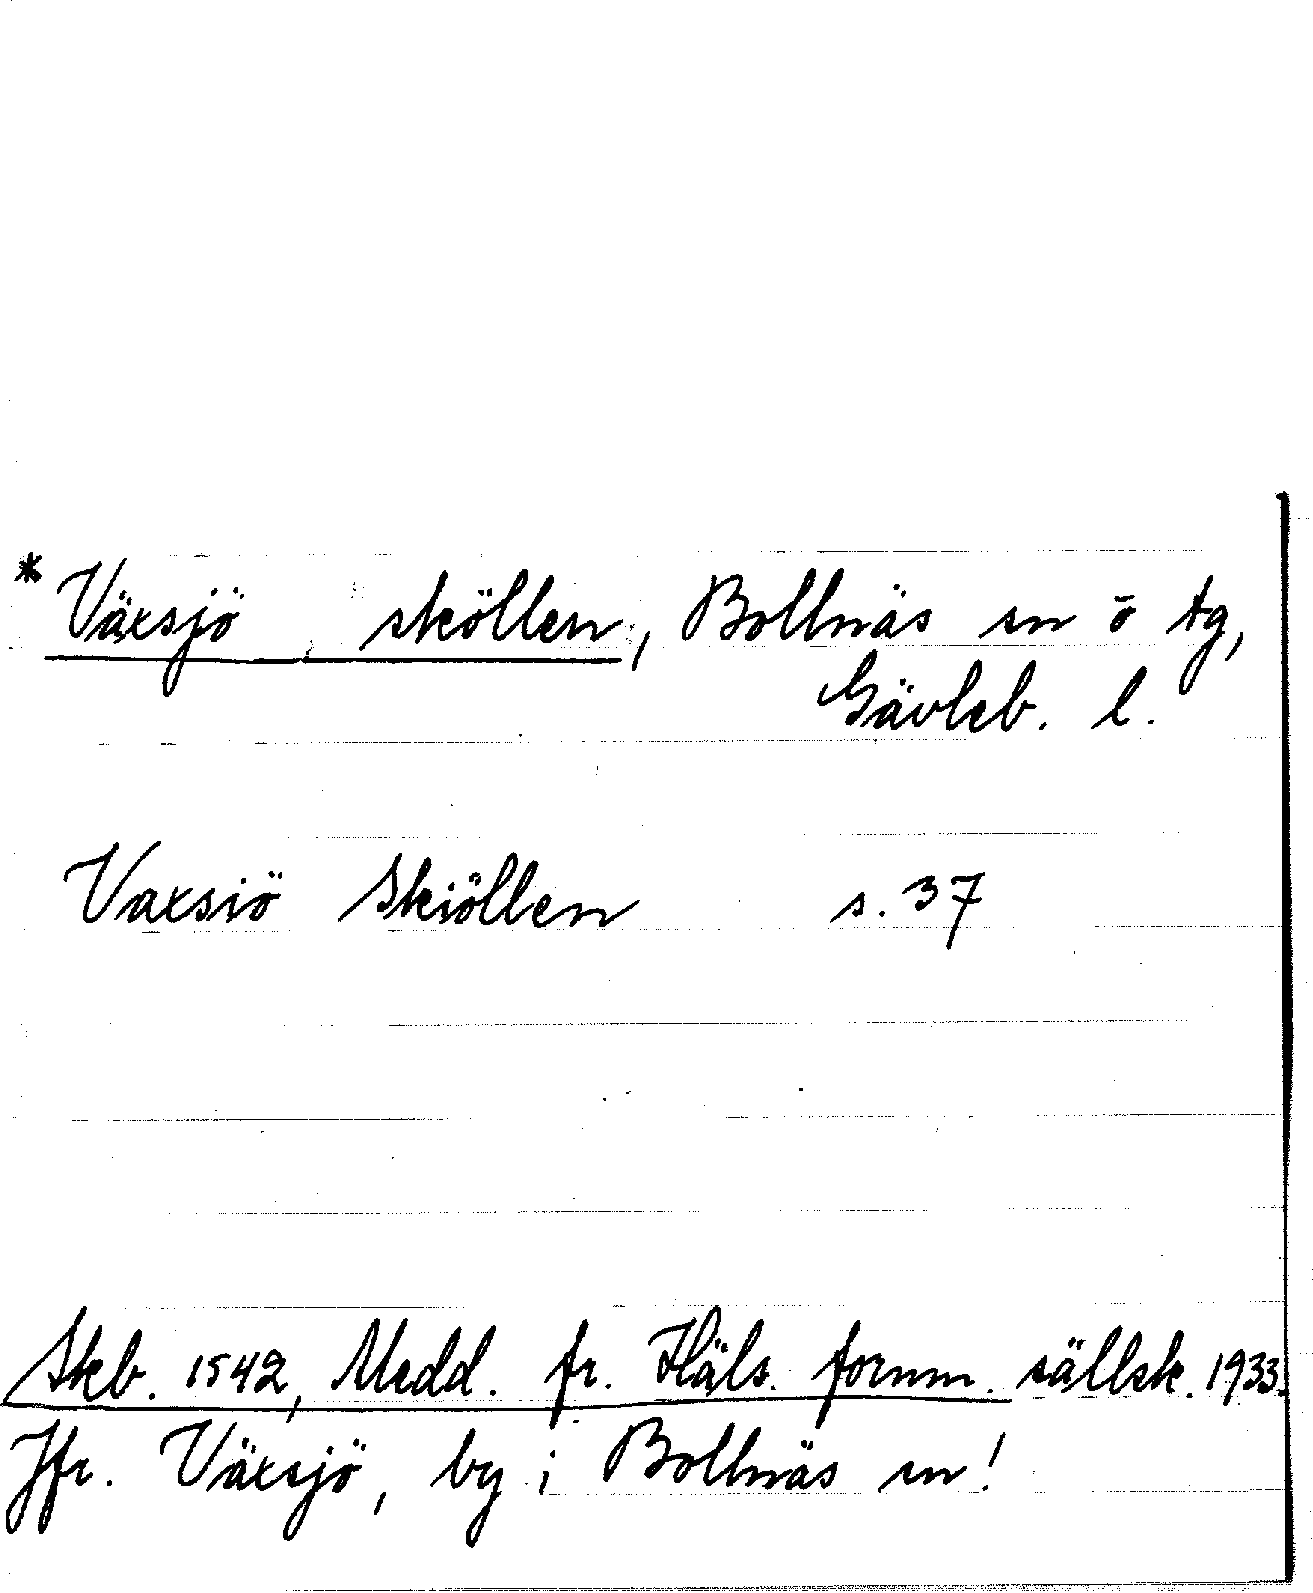 * Växsjö sköllen, Bollnäs sn o tg,
Gävleb. l.
Vaxsiö Skiöllen s. 37
Skb. 1542, Medd. fr. Häls. fornm. sällsk. 1933.
Jfr. Växsjö, by i Bollnäs sn!